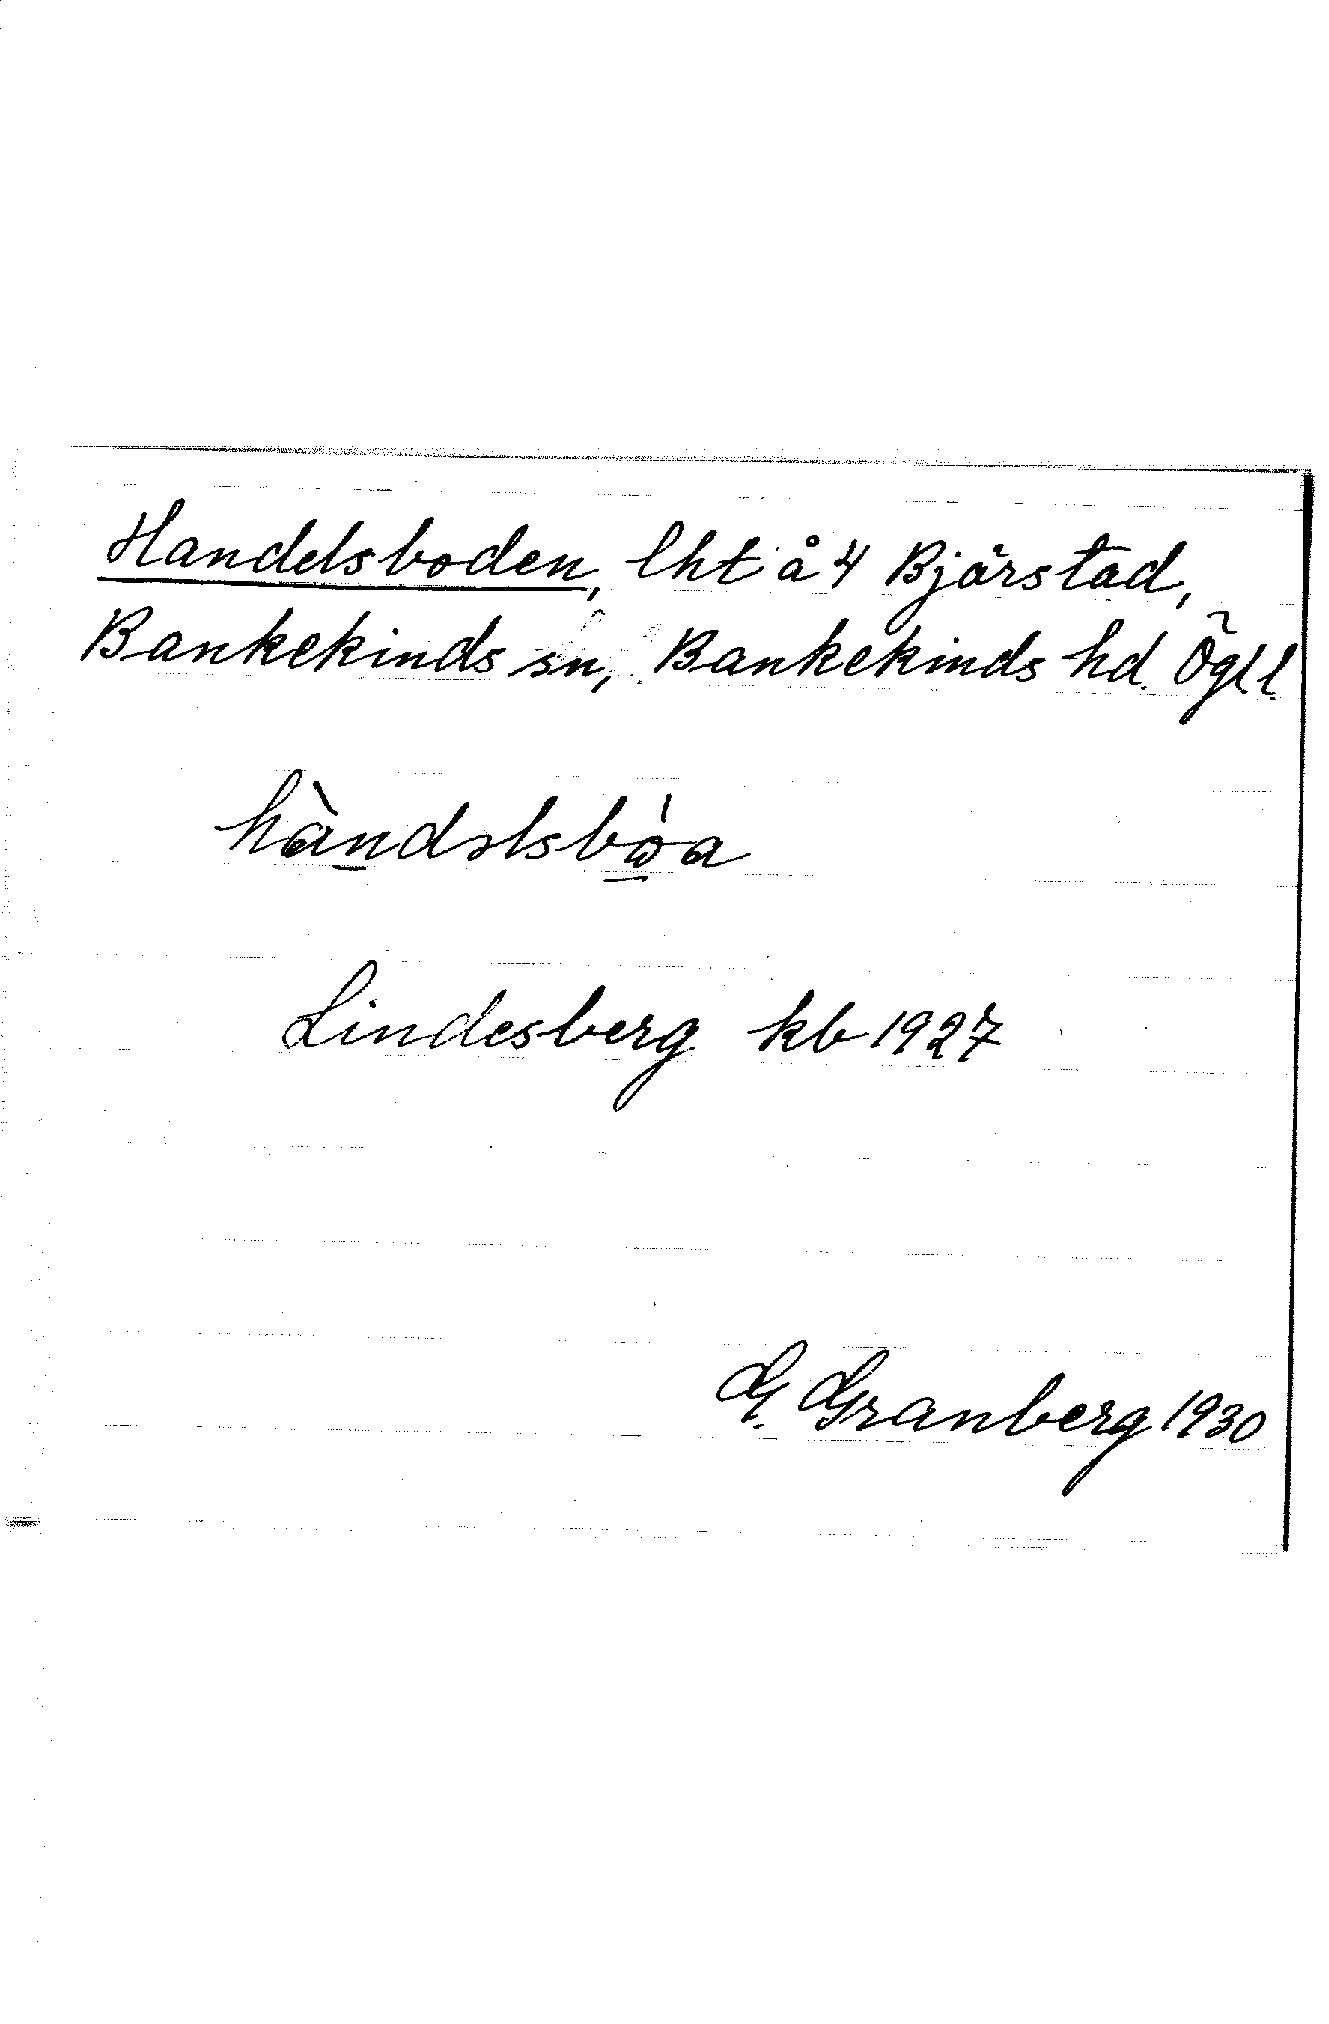 Handelsboden, lht å 4 Bjärstad,
Bankekinds sn, Bankekinds hd. Ögll.
hàndəlsbo̠´a
Lindesberg kb 1927
G. Granberg 1930